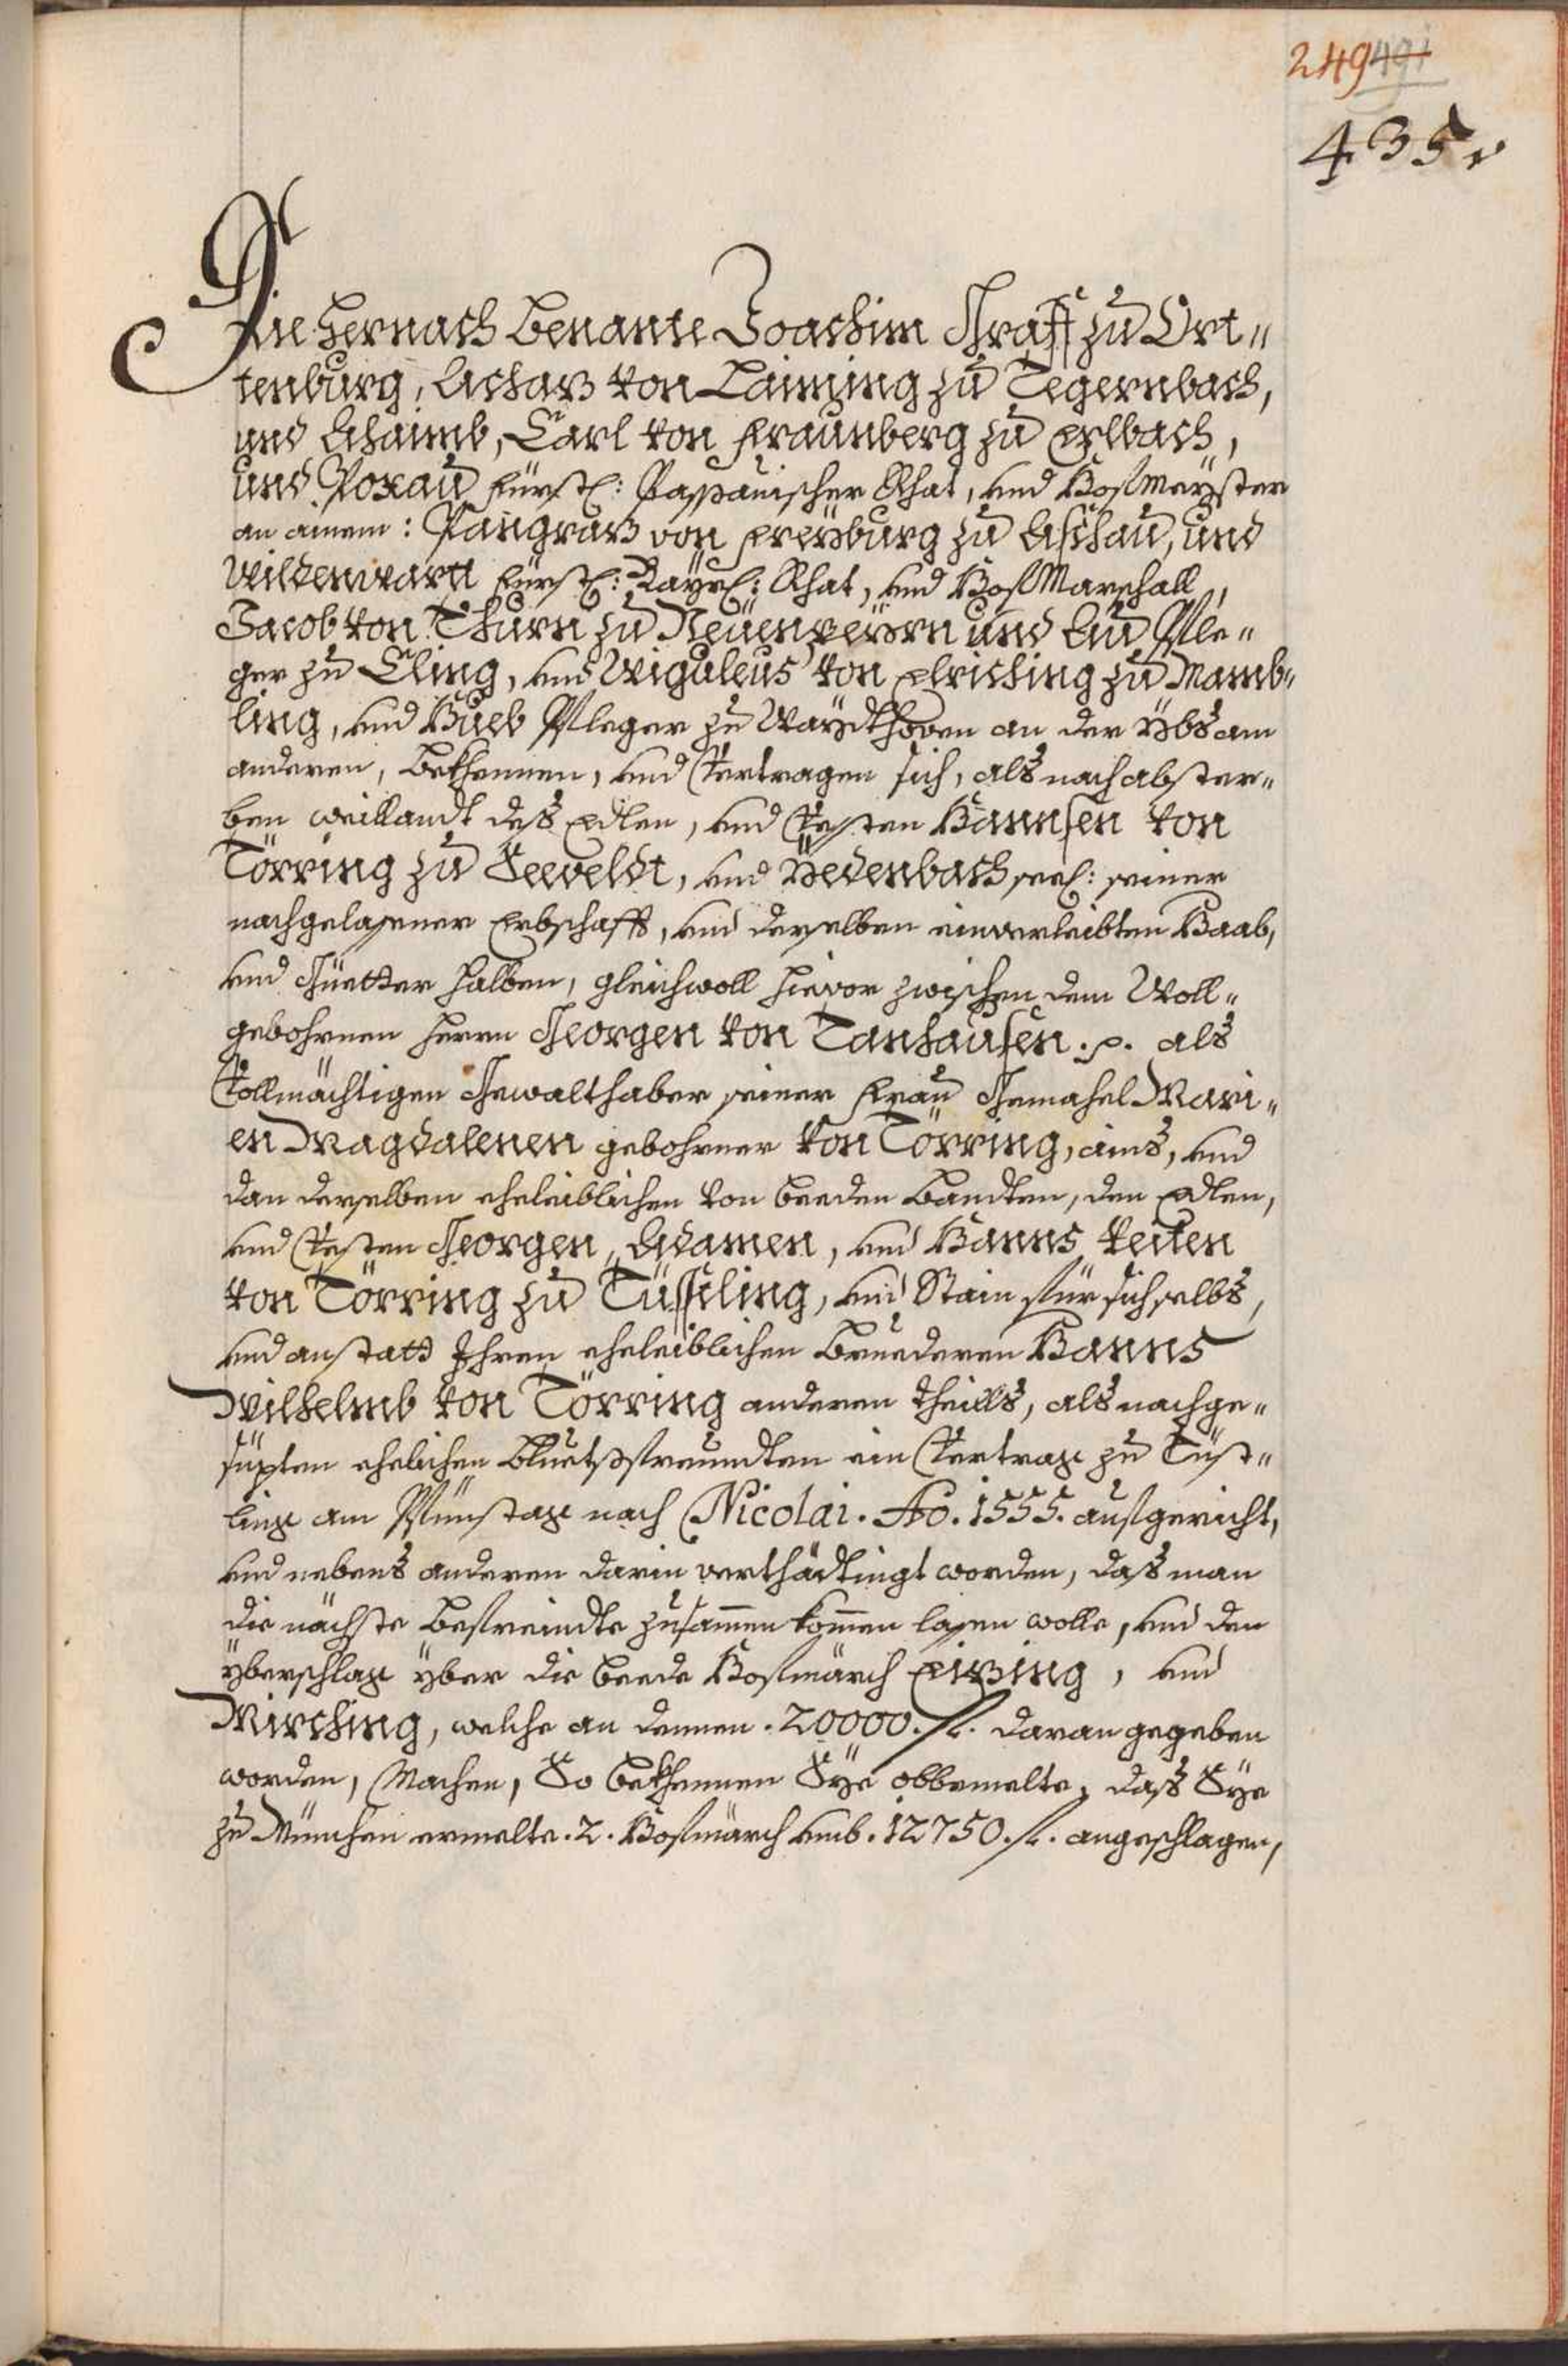 249 491
435
Die hernach Benante Joachim Graff zu Ort„
tenburg, Achatz von Laiming zu Tegernbach,
und Ahaimb, Carl von Fraunberg zu Erlbach,
und Poxau Fürstl: Passauischer Rhat, und Hofmeyster
an ainem: Pangratz von Freyburg zu Aschau, und
Wildenwartt Fürstl: Bayrl: Rhat, und HofMarschall,
Jacob von Thurn zu Neüenpeyrn und Au Pfle„
ger zu Cling, und Wiguleus von Elriching zu Mamb„
ling, und Hueb Pfleger zu Waydthoven an der Ybs am
anderen, bekhennen, und Vertragen sich, als nach abster„
ben weillandt deß Edlen, und Vesten Hannsen von
Törring zu Seeveldt, und Yedenbach seel: seiner
nachgelassener Erbschafft, und derselben einverleibten Haab,
und Güetter halben, gleichwoll hievor zwischen dem Woll„
gebohrnen Herrn Georgen von Tanhausen .p. als
Vollmächtigen Gewalthaber seiner Frau Gemahel Mari„
en Magdalenen gebohrner von Törring, ains, und
dan derselben eheleiblichen von beeden Bandten, den Edlen,
und Vesten Georgen, Adamen, und Hanns Veiten
von Törring zu Tüssling, und Stain für sich selbs,
und anstatt Ihren eheleiblichen Bruederen Hanns
Wilhelmb von Törring anderen theills, als nachge„
süpten ehelichen Bluetsfreundten ein Vertrag zu Tüst„
ling am Pfünstag nach Nicolai. Ao. 1555. aufgericht,
und nebens anderen darin verthädtingt worden, daß man
die nächste Befreindte zusammen kommen lassen wolle, und den
Yberschlag yber die beede Hofmärch Eitzing, und
Mirching, welche an denen .20000. fl. daran gegeben
worden, Machen, So bekhennen Sye obbemelte, daß Sye
zu München ermelte .2. Hofmärch umb .12750. fl. angeschlagen,